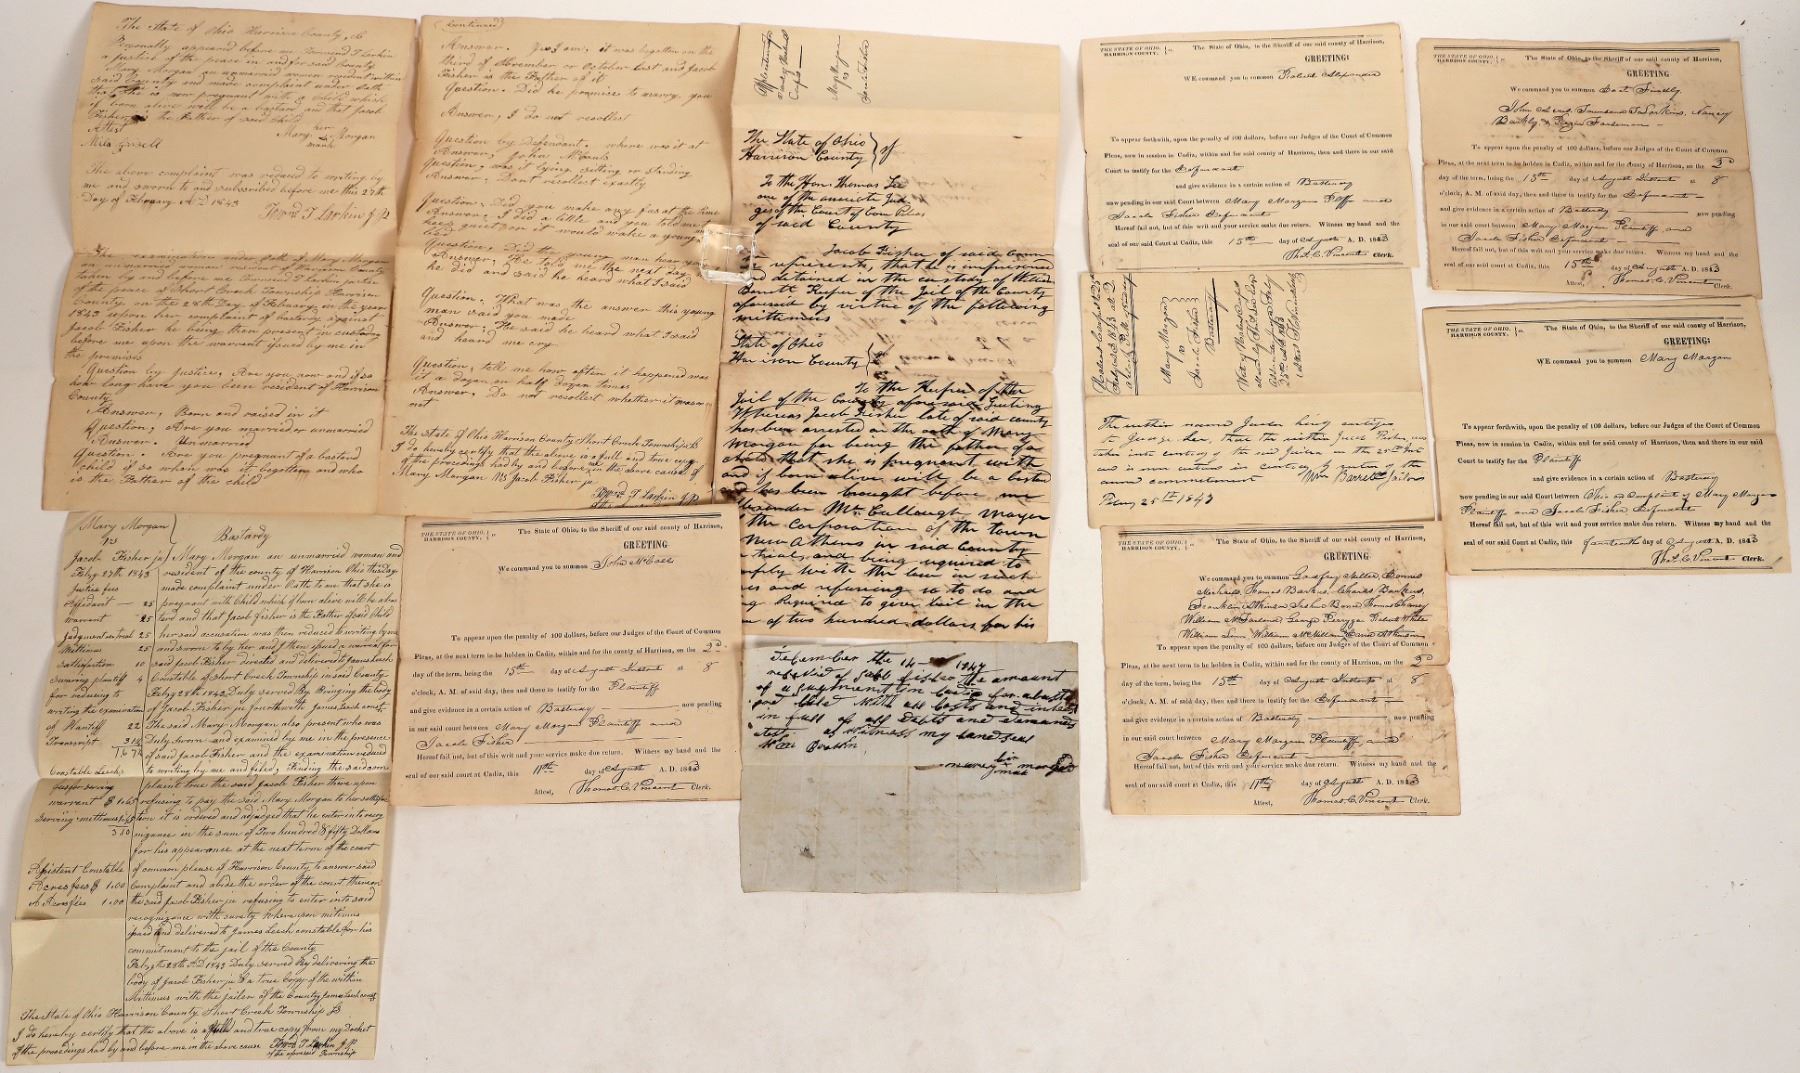 The State of Ohio Harrison County, ss
Personally appeared before me Townsend T Larkin
a justice of the peace in and for said County
Mary Morgan an unmarried woman resident within
said County and made complaint under oath
that she is now pregnant with a child which
if born alive will be a bastard and that Jacob
Fisher is the Father of said child
Attest
her
Mary Morgan
mark
The above complaint was reduced to writing by
me and sworn to and subscribed before me this 27th
Day of February AD 1843
Townd T Larkin J.P.
The examination under oath of Mary Morgan
an unmarried woman resident of Harrison County
taken by and before me Townsend T Larkin justice
of the peace of Short Creek Township Harrison
County on the 28th Day of February in the year
1843 upon her complaint of bastardy against
Jacob Fisher he being then present in custody
before me upon the warrant issued by me in
the premises
Question by Justice, Are you now and if so
how long have you been resident of Harrison
County
Answer, Born and raised in it
Question, Are you married or unmarried
Answer. Unmarried
Question. Are you pregnant of a bastard
child if so when was it begotten and who
is the Father of the child
(Continued)
Answer. Yes I am. it was begotten on the
third of November or October last and Jacob
Fisher is the Father of it
Question. Did he promise to marry you
Answer, I do not recollect
Question by Defendant, where was it at
Answer, John McCauls
Question, was it lying, sitting or standing
Answer. Dont recollect exactly
Question. Did you make any fus at the time
Answer, I did a little and you told me
be quiet or it would wake a young man
Question. Did the young man hear you
Answer. He told me the next day
he did and said he heard what I said
Question. What was the answer this young
man said you made
Answer, He said he heard what I said
and heard me cry
Question, tell me how often it happened was
it a dozen or half dozen times
Answer, Do not recollect whether it was or
not
The State of Ohio Harrison County Short Creek Township ss
I do hereby certify that the above is a full and true copy
of the procedings had by and before me in the above cause of
Mary Morgan vs Jacob Fisher jr
Townd T Larkin J.P.
Mary Morgan
vs
The State of Ohio
Harrison County } ss
To the Hon. Thomas Lee
one of the associate Jud-
ges of the Court of Com Pleas
of said County
Jacob Fisher of said Coun
represents, that he is imprisoned
and detained in the custody of William
Barrett Keeper of the Jail of the County
aforesaid by virtue of the following
mittimus
State of Ohio
Harrison County } ss
To the Keeper of the
Jail of the County aforesaid Greeting
Whereas Jacob Fisher late of said county
has been arrested on the oath of Mary
Morgan for being the father of a
child that she is pregnant with
and if born alive will be a bastard
has been brought before me
Alexander McCullaugh Mayor
the corporation of the town
New Athens in said County
trial, and being required to
comply with the law in such
and refusing so to do and
Required to give bail in the
of two hundred dollars for his
THE STATE OF OHIO,
HARRISON COUNTY. } ss
The State of Ohio, to the Sheriff of our said county of Harrison,
GREETING:
WE command you to summon Robert Alexander
To appear forthwith, upon the penalty of 100 dollars, before our Judges of the Court of Common
Pleas, now in session in Cadiz, within and for said county of Harrison, then and there in our said
Court to testify for the Defendant
and give evidence in a certain action of Bastardy
now pending in said Court between Mary Morgan Plff and
Jacob Fisher Defendant
Hereof fail not, but of this writ and your service make due return. Witness my hand and the
seal of our said Court at Cadiz, this 15th day of August A. D. 1843
Thos. C. Vincent Clerk.
THE STATE OF OHIO,
HARRISON COUNTY. } ss
The State of Ohio, to the Sheriff of our said county of Harrison,
GREETING
We command you to summon
Townsend T Larkins, Nancy
To appear upon the penalty of 100 dollars, before our Judges of the Court of Common
Pleas, at the next term to be holden in Cadiz, within and for the county of Harrison, on the 2d
day of the term, being the 15th day of August Instant at 8
o'clock, A. M. of said day, then and there to testify for the Defendant
and give evidence in a certain action of Bastardy now pending
in our said court between Mary Morgan Plaintiff and
Jacob Fisher Defendant
Hereof fail not, but of this writ and your service make due return. Witness my hand and the
seal of our said court at Cadiz, this 15th day of August A. D. 1843
Attest, Thomas C. Vincent Clerk.
Mary Morgan
vs
Jacob Fisher
Bastardy
The within named
to
taken into custody of the said Jailor on the 25th
and is now
annexed commitment Wm Barrett Jailor
Febry 25th 1843
THE STATE OF OHIO,
HARRISON COUNTY. } ss
The State of Ohio, to the Sheriff of our said county of Harrison,
GREETING:
WE command you to summon Mary Morgan
To appear forthwith, upon the penalty of 100 dollars, before our Judges of the Court of Common
Pleas, now in session in Cadiz, within and for said county of Harrison, then and there in our said
Court to testify for the Plaintiff
and give evidence in a certain action of Bastardy
now pending in our said Court between Ohio on complaint of Mary Morgan
Plaintiff and Jacob Fisher Defendant
Hereof fail not, but of this writ and your service make due return. Witness my hand and the
seal of our said Court at Cadiz, this fourteenth day of August A. D. 1843
Thos. C. Vincent Clerk.
Mary Morgan
vs
Jacob Fisher jr
Feby 27th 1843
Justice fees
Affidavit — 25
Warrant — 25
Judgment on trial 25
Mittimus 25
Satisfaction 10
Swearing plaintiff 4
for reducing to
writing the examination
of Plaintiff 22
Transcript
Constable Leech
fees for serving
warrant
serving mittimus
3 10
Assistant Constable
Acres fees $ 1.00
1.00
Bastardy
Mary Morgan an unmarried woman and
resident of the county of Harrison Ohio this day
made complaint under Oath to me that she is
pregnant with Child which if born alive will be a bas
tard and that Jacob Fisher is the Father of said Child
her said accusation was then reduced to writing by me
and sworn to by her and I then issued a warrant for
said Jacob Fisher directed and delivered to James Leech
Constable of Short Creek Township in said County
Feby 28th 1843, Duly Served By Bringing the body
of Jacob Fisher jr forthwith James Leech const
The said Mary Morgan also present who was
Duly sworn and examined by me in the presence
of said Jacob Fisher and the examination reduced
to writing by me and filed, Finding the said com
plaint true the said Jacob Fisher there upon
refusing to pay the said Mary Morgan to her satisfac
tion it is ordered and adjudged that he enter into recog
nizance in the sum of Two hundred & fifty Dollars
for his appearance at the next term of the court
of common pleas of Harrison County to answer said
Complaint and abide the order of the court thereon
the said Jacob Fisher jr refusing to enter into said
recognizance with surety Where upon mittimus
issued and delivered to James Leech constable for his
commitment to the jail of the County
Feby the 28th AD 1843 Duly served By delivering the
body of Jacob Fisher jr & a true Copy of the within
Mittimus with the jailer of the County James Leech const
The State of Ohio Harrison County Short Creek Township SS
I do hereby certify that the above is a full and true copy from my Docket
of the proceedings had by and before me in the above cause Townd T Larkin J.P.
of the aforesaid Township
THE STATE OF OHIO,
HARRISON COUNTY. } ss
The State of Ohio, to the Sheriff of our said county of Harrison,
GREETING
We command you to summon John McCall
To appear upon the penalty of 100 dollars, before our Judges of the Court of Common
Pleas, at the next term to be holden in Cadiz, within and for the county of Harrison, on the 2d
day of the term, being the 15th day of August Instant at 8
o'clock, A. M. of said day, then and there to testify for the Plaintiff
and give evidence in a certain action of Bastardy now pending
in our said court between Mary Morgan Plaintiff and
Jacob Fisher
Hereof fail not, but of this writ and your service make due return. Witness my hand and the
seal of our said court at Cadiz, this 11th day of August A. D. 1843
Attest, Thomas C. Vincent Clerk.
December the 14 1847
received of Jacob fisher the amount
of a judgment in for a bastard
child With all costs and interest
in full of all Debts and demands
attest as witness my hand seal
her
morgan
mark
THE STATE OF OHIO,
HARRISON COUNTY. } ss
The State of Ohio, to the Sheriff of our said county of Harrison,
GREETING
We command you to summon Godfrey
Thomas Barkus, Charles Barkus,
Franklin Atkinson Thomas Chaney
William McFarland George Robert White
William Linn William McMillan David Atkinson
To appear upon the penalty of 100 dollars, before our Judges of the Court of Common
Pleas, at the next term to be holden in Cadiz, within and for the county of Harrison, on the 2d
day of the term, being the 15th day of August Instant at 8
o'clock, A. M. of said day, then and there to testify for the Defendant
and give evidence in a certain action of Bastardy now pending
in our said court between Mary Morgan Plaintiff and
Jacob Fisher Defendant
Hereof fail not, but of this writ and your service make due return. Witness my hand and the
seal of our said court at Cadiz, this 11th day of August A. D. 1843
Attest, Thomas C. Vincent Clerk.